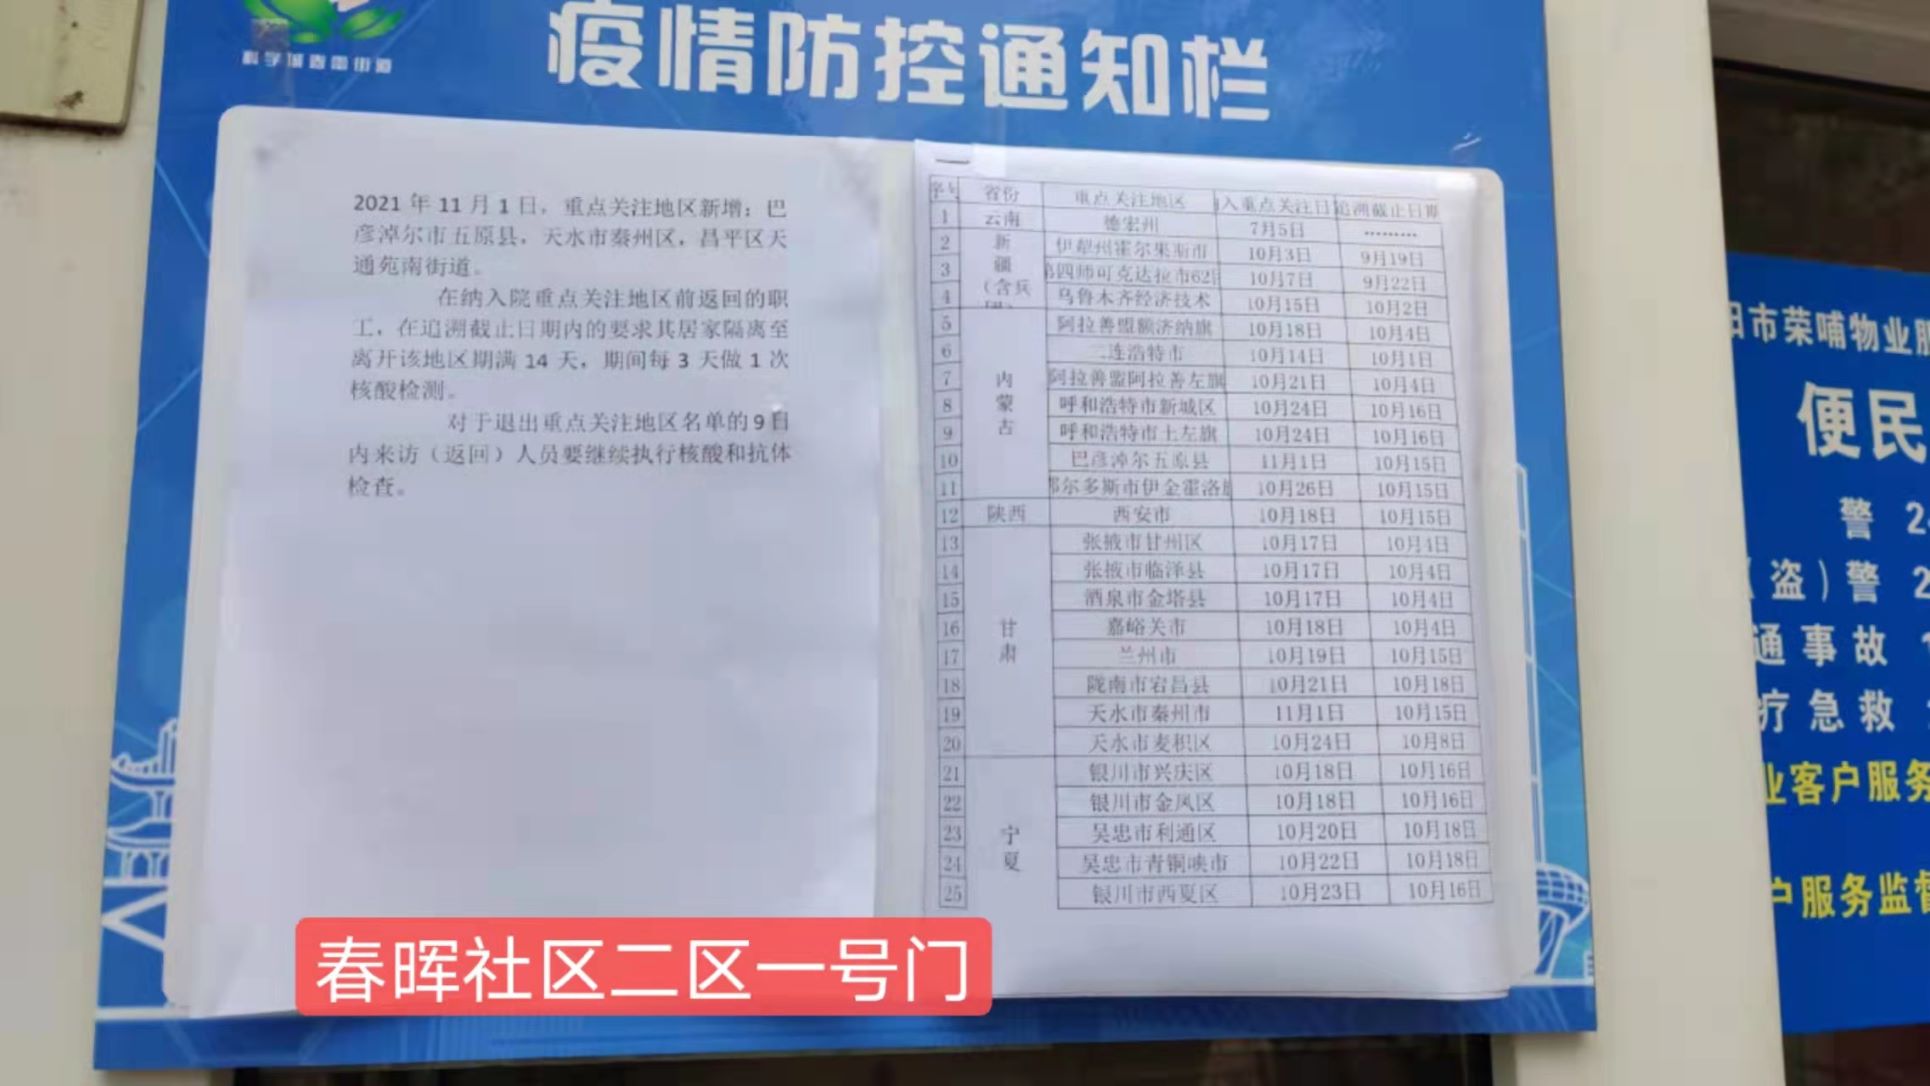 疫情防控通知栏
科学城春雷街道
2021 年 11 月 1 日，重点关注地区新增：巴
彦淖尔市五原县，天水市秦州区，昌平区天
通苑南街道。
在纳入院重点关注地区前返回的职
工，在追溯截止日期内的要求其居家隔离至
离开该地区期满 14 天，期间每 3 天做 1 次
核酸检测。
对于退出重点关注地区名单的 9 日
内来访（返回）人员要继续执行核酸和抗体
检查。
序号 省份 重点关注地区 入重点关注日 追溯截止日期
1 云南 德宏州 7月5日 ………
2 新疆（含兵团） 伊犁州霍尔果斯市 10月3日 9月19日
3 第四师可克达拉市62团 10月7日 9月22日
4 乌鲁木齐经济技术 10月15日 10月2日
5 内蒙古 阿拉善盟额济纳旗 10月18日 10月4日
6 二连浩特市 10月14日 10月1日
7 阿拉善盟阿拉善左旗 10月21日 10月4日
8 呼和浩特市新城区 10月24日 10月16日
9 呼和浩特市土左旗 10月24日 10月16日
10 巴彦淖尔五原县 11月1日 10月15日
11 鄂尔多斯市伊金霍洛旗 10月26日 10月15日
12 陕西 西安市 10月18日 10月15日
13 甘肃 张掖市甘州区 10月17日 10月4日
14 张掖市临泽县 10月17日 10月4日
15 酒泉市金塔县 10月17日 10月4日
16 嘉峪关市 10月18日 10月4日
17 兰州市 10月19日 10月15日
18 陇南市宕昌县 10月21日 10月18日
19 天水市秦州市 11月1日 10月15日
20 天水市麦积区 10月24日 10月8日
21 宁夏 银川市兴庆区 10月18日 10月16日
22 银川市金凤区 10月18日 10月16日
23 吴忠市利通区 10月20日 10月18日
24 吴忠市青铜峡市 10月22日 10月18日
25 银川市西夏区 10月23日 10月16日
春晖社区二区一号门
阳市荣哺物业服
便民
警 2
（盗）警 2
通事故
疗急救
业客户服务
户服务监督